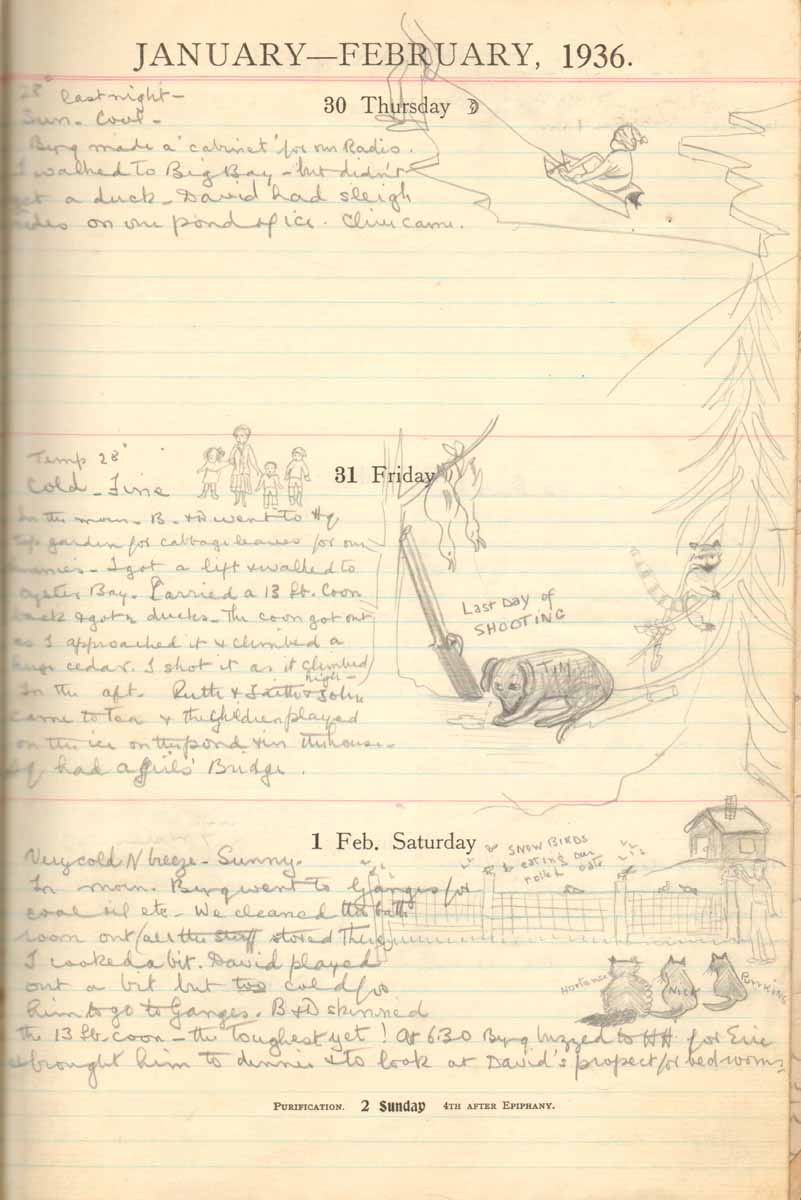 JANUARY—FEBRUARY, 1936.
28° last night—
Sun. Cool.
30 Thursday
Byrg made a 'cabinet' for our Radio.
I walked to Big Bay — but didn't
get a duck — David had sleigh
rides on our pond of ice. Clive came.
Temp 28°
Cold — Fine
31 Friday
In the morn. B. & D went to
garden for cabbage leaves for our
I got a lift & walked to
Oyster Bay. Carried a 13 lb. Coon
back & got 2 ducks. The coon got out
as I approached it & climbed a
huge cedar. I shot it as it climbed
high—
In the aft. Ruth & Edith & John
came to tea & the children played
on the ice on the pond & in the house.
had a girls' Bridge.
Last Day of
SHOOTING
TIM
1 Feb. Saturday
Very cold N breeze — Sunny.
SNOW BIRDS
eating our
rolled oats
In morn. Byrg went to Ganges for
coal oil etc — We cleaned the bath
room out/all the stuff stored there
I cooked a bit. David played
out a bit but too cold for
him to go to Ganges. B & D skinned
Hortense
NICK
PUSSKINS
the 13 lb. coon — the toughest yet! At 6.30 Byrg buzzed to HH for Eric
& brought him to dinner & to look at David's propect for bedrooms
PURIFICATION. 2 Sunday 4TH AFTER EPIPHANY.